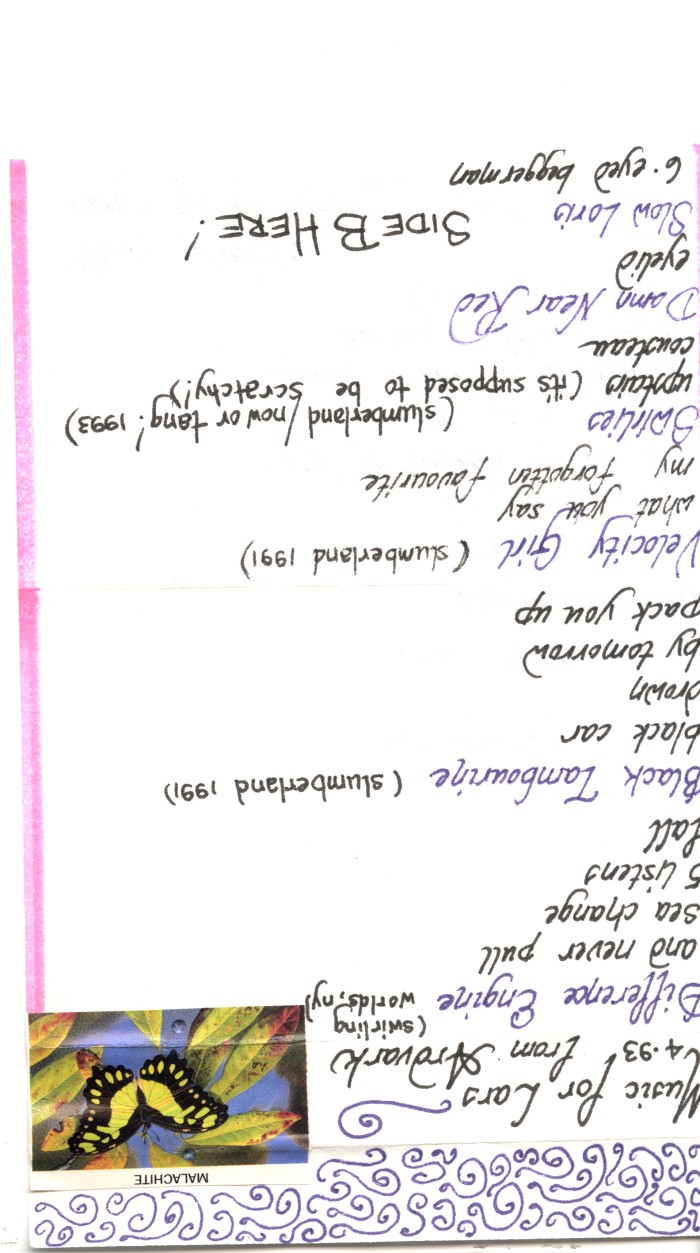 MALACHITE
Music for Lars
4.93 from Ardvark
(swirling
Difference Engine worlds, ny)
and never pull
sea change
5 listens
fall
Black Tambourine (slumberland 1991)
black car
drown
by tomorrow
pack you up
Velocity Girl (slumberland 1991)
what you say
my forgotten favourite
Swirlies (slumberland/now or tang! 1993)
upstairs (it's supposed to be scratchy!)
cousteau
Damn Near Red
eyelid
Slow Loris SIDE B HERE!
6·eyed beggerman